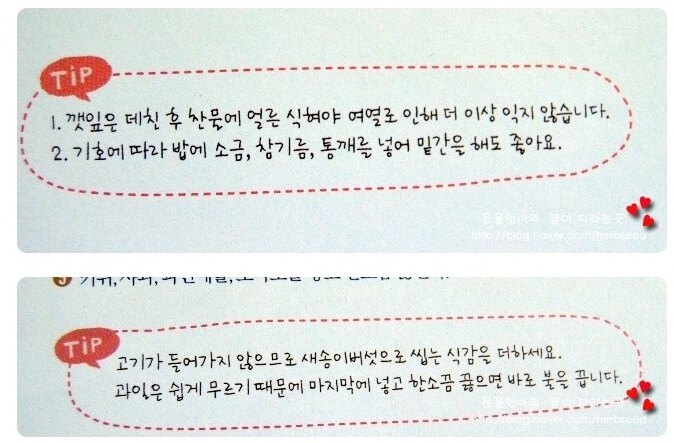 TiP
1. 깻잎은 데친 후 찬물에 얼른 식혀야 여열로 인해 더 이상 익지 않습니다.
2. 기호에 따라 밥에 소금, 참기름, 통깨를 넣어 밑간을 해도 좋아요.
http://blog.naver.com/herbseed
TiP
고기가 들어가지 않으므로 새송이버섯으로 씹는 식감을 더하세요.
과일은 쉽게 무르기 때문에 마지막에 넣고 한소끔 끓으면 바로 불을 끕니다.